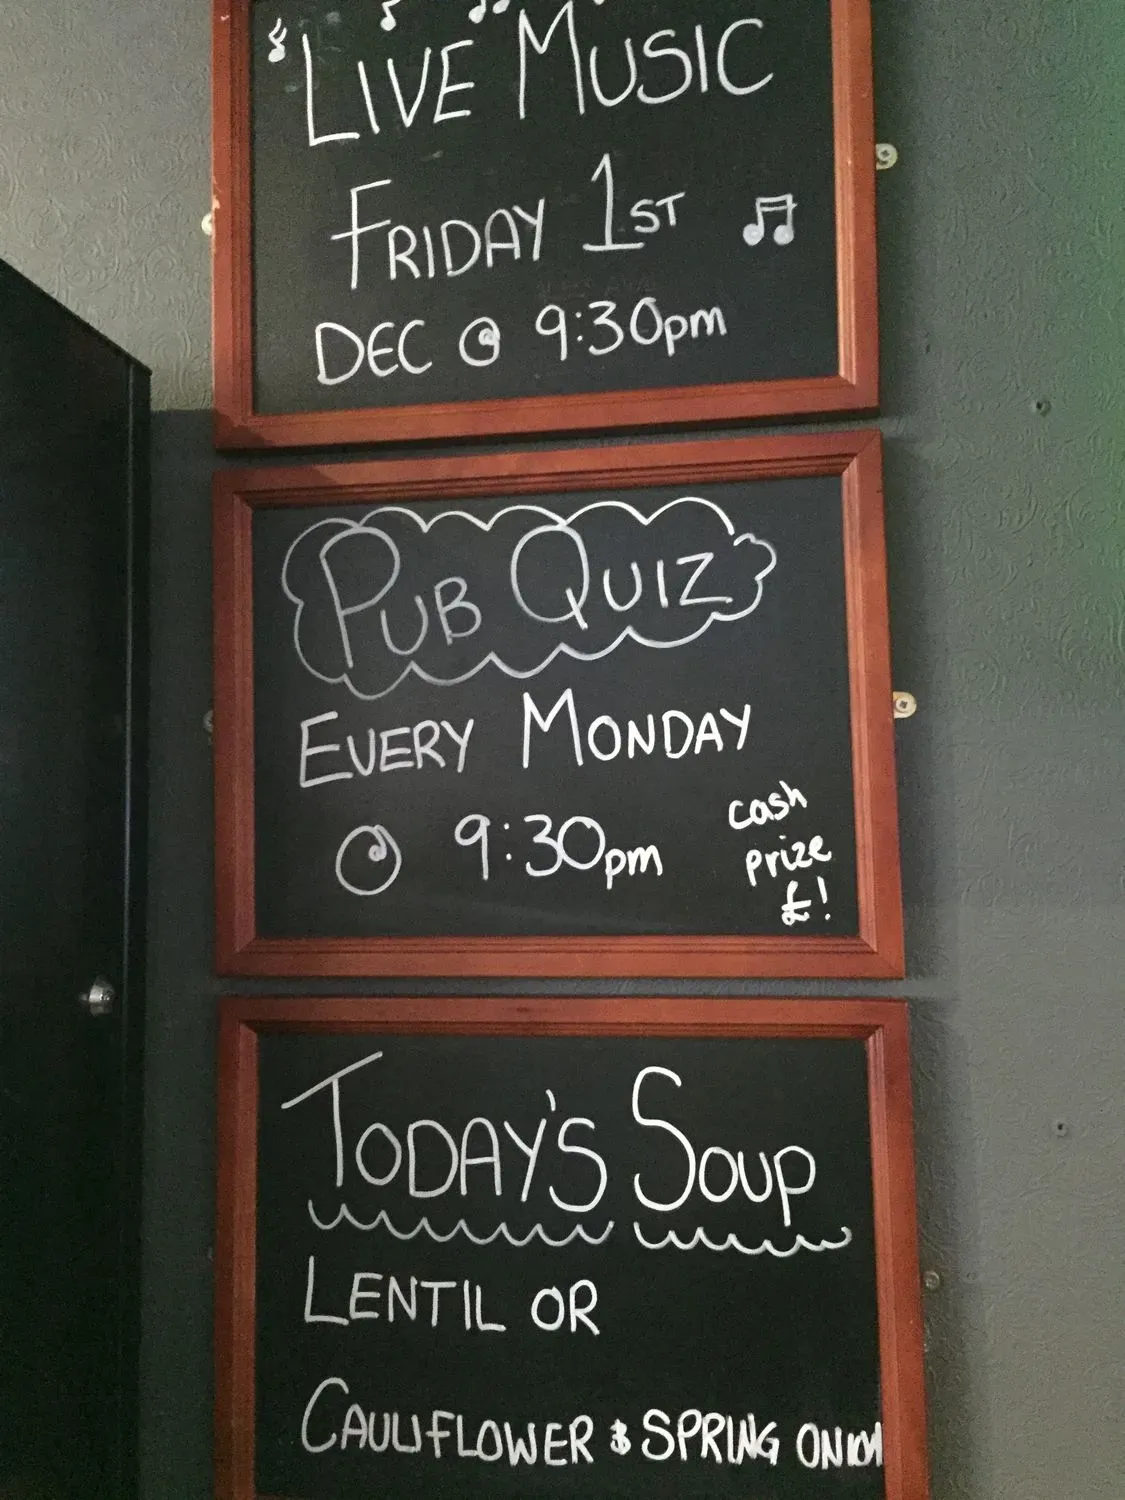 LIVE MUSIC
FRIDAY 1ST
DEC @ 9:30pm
PUB QUIZ
EVERY MONDAY
@ 9:30pm
cash
prize
£!
TODAY'S SOUP
LENTIL OR
CAULIFLOWER & SPRING ONION